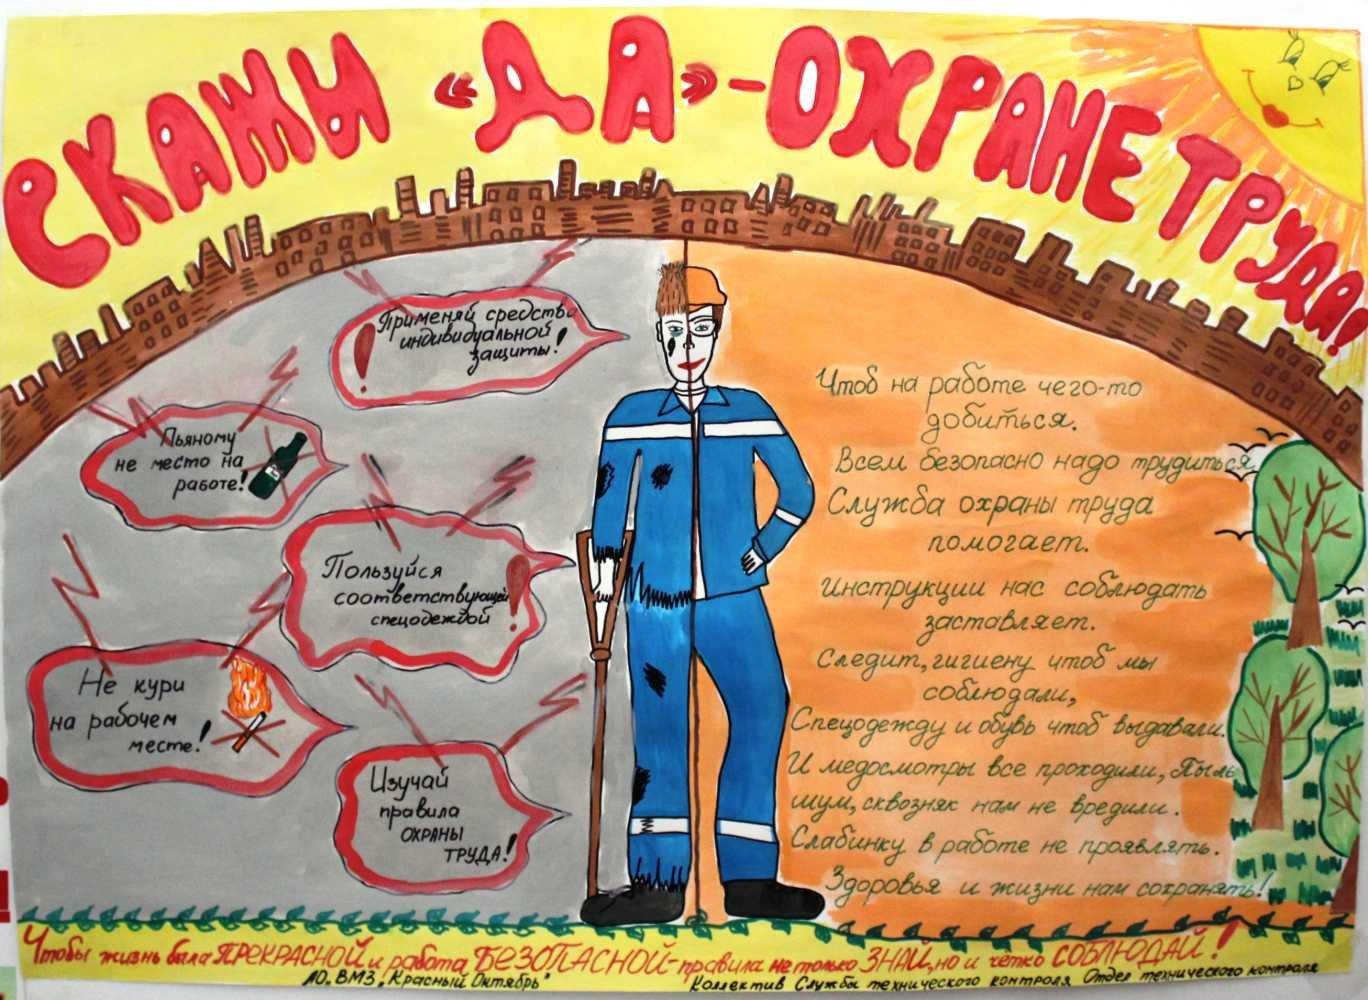 СКАЖИ «ДА» - ОХРАНЕ ТРУДА!
Применяй средства
индивидуальной
защиты!
Пьяному
не место на
работе!
Пользуйся
соответствующей
спецодеждой
Не кури
на рабочем
месте!
Изучай
правила
ОХРАНЫ
ТРУДА!
Чтоб на работе чего-то
добиться.
Всем безопасно надо трудиться
Служба охраны труда
помогает.
Инструкции нас соблюдать
заставляет.
Следит, гигиену чтоб мы
соблюдали,
Спецодежду и обувь чтоб выдавали.
И медосмотры все проходили, Пыль
шум, сквозняк нам не вредили.
Слабинку в работе не проявлять.
Здоровья и жизни нам сохранять!
Чтобы жизнь была ПРЕКРАСНОЙ и работа БЕЗОПАСНОЙ - правила не только ЗНАЙ, но и чётко СОБЛЮДАЙ!
АО "ВМЗ "Красный Октябрь"
Коллектив Служба технического контроля Отдел технического контроля